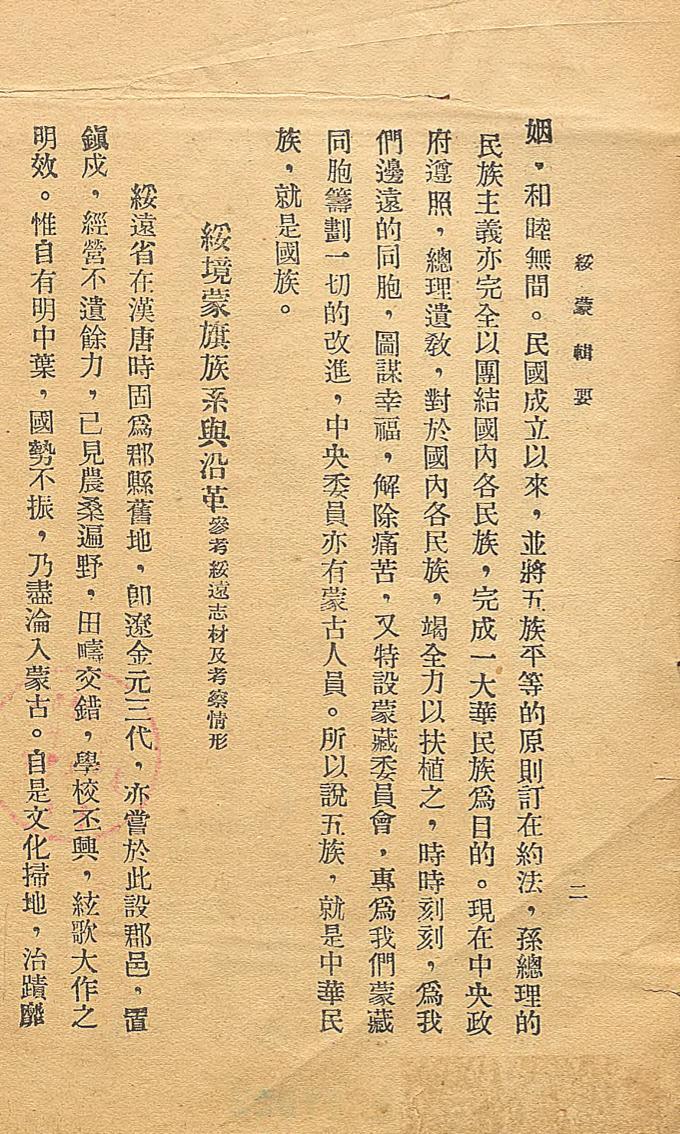 綏蒙輯要
二
姻，和睦無間。民國成立以來，並將五族平等的原則訂在約法，孫總理的
民族主義亦完全以團結國內各民族，完成一大華民族為目的。現在中央政
府遵照，總理遺敎，對於國內各民族，竭全力以扶植之，時時刻刻，為我
們邊遠的同胞，圖謀幸福，解除痛苦，又特設蒙藏委員會，專為我們蒙藏
同胞籌劃一切的改進，中央委員亦有蒙古人員。所以說五族，就是中華民
族，就是國族。
綏境蒙旗族系與沿革參考綏遠志材及考察情形
綏遠省在漢唐時固為郡縣舊地，卽遼金元三代，亦嘗於此設郡邑，置
鎭戍，經營不遺餘力，已見農桑遍野，田疇交錯，學校丕興，絃歌大作之
明效。惟自有明中葉，國勢不振，乃盡淪入蒙古。自是文化掃地，治蹟靡